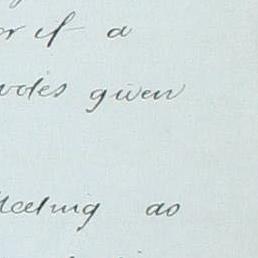 or if a
votes given
Meeting as